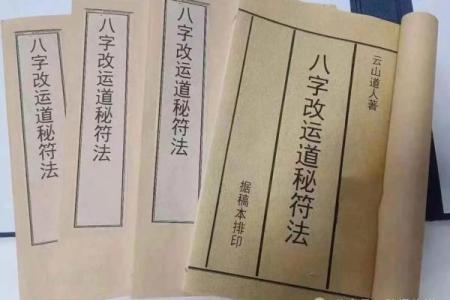 八字改运道秘符法
八字改运道秘符法
八字改运道秘符法
云山道人著
八字改运道秘符法
据稿本排印